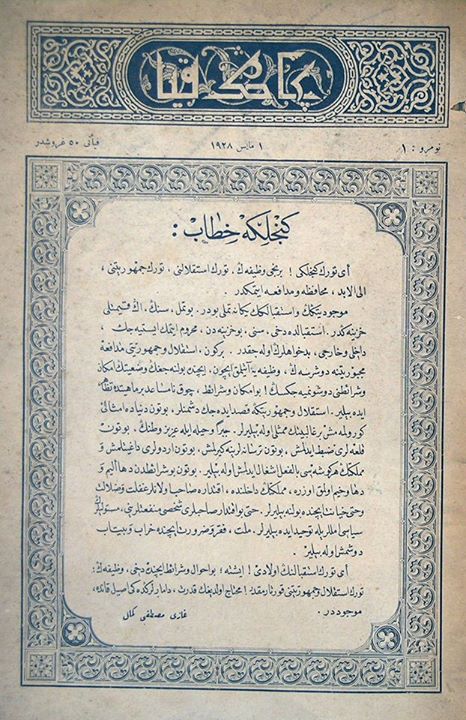 نومرو : ١
١ مايس ١٩٢٨
فيأتى ٥٠ غروشدر
كنجلكه خطاب :
اى تورك كنجلكى ! برنجى وظيفه‌ك ، تورك استقلالنى ، تورك جمهوريتنى ،
الى الابد ، محافظه و مدافعه ايتمكدر .
موجوديتكك و استقبالكك يكانه تملى بودر . بو تمل ، سنك ، اك قيمتلى
خزينه‌كدر . استقبالده دخى ، سنى ، بو خزينه‌دن ، محروم ايتمك ايسته‌يه‌جك ،
داخلى و خارجى ، بدخواهلرك اوله‌جقدر . بر كون ، استقلال و جمهوريتى مدافعه
مجبوريتنه دوشرسه‌ك ، وظيفه‌يه آتيلمق ايچون ، ايچنده بولنه‌جغك وضعيتك امكان
و شرائطنى دوشونميه‌جكسك ! بو امكان و شرائط ، چوق نامساعد بر ماهيتده تظاهر
ايده‌بيلير . استقلال و جمهوريتكه قصد ايده‌جك دشمنلر ، بوتون دنياده امثالى
كورولمه‌مش بر غالبيتك ممثلى اوله‌بيليرلر . جبراً و حيله ايله عزيز وطنك ، بوتون
قلعه‌لرى ضبط ايدلمش ، بوتون ترسانه‌لرينه كيرلمش ، بوتون اردولرى داغيتلمش و
مملكتك هر كوشه‌سى بالفعل اشغال ايدلمش اوله‌بيلير . بوتون بو شرائطدن دها اليم و
دها وخيم اولمق اوزره ، مملكتك داخلنده ، اقتداره صاحب اولانلر غفلت و ضلالت
و حتى خيانت ايچنده بولنه‌بيليرلر . حتى بو اقتدار صاحبلرى شخصى منفعتلرينى ، مستوليلرك
سياسى امللريله توحيد ايده‌بيليرلر . ملت ، فقر و ضرورت ايچنده خراب و بيتاب
دوشمش اوله‌بيلير .
اى تورك استقبالنك اولادى ! ايشته ؛ بو احوال و شرائط ايچنده دخى ، وظيفه‌ك :
تورك استقلال و جمهوريتنى قورتارمقدر ! محتاج اولديغك قدرت ، دامارلركده‌كى اصيل قانده ،
موجوددر .
غازى مصطفى كمال